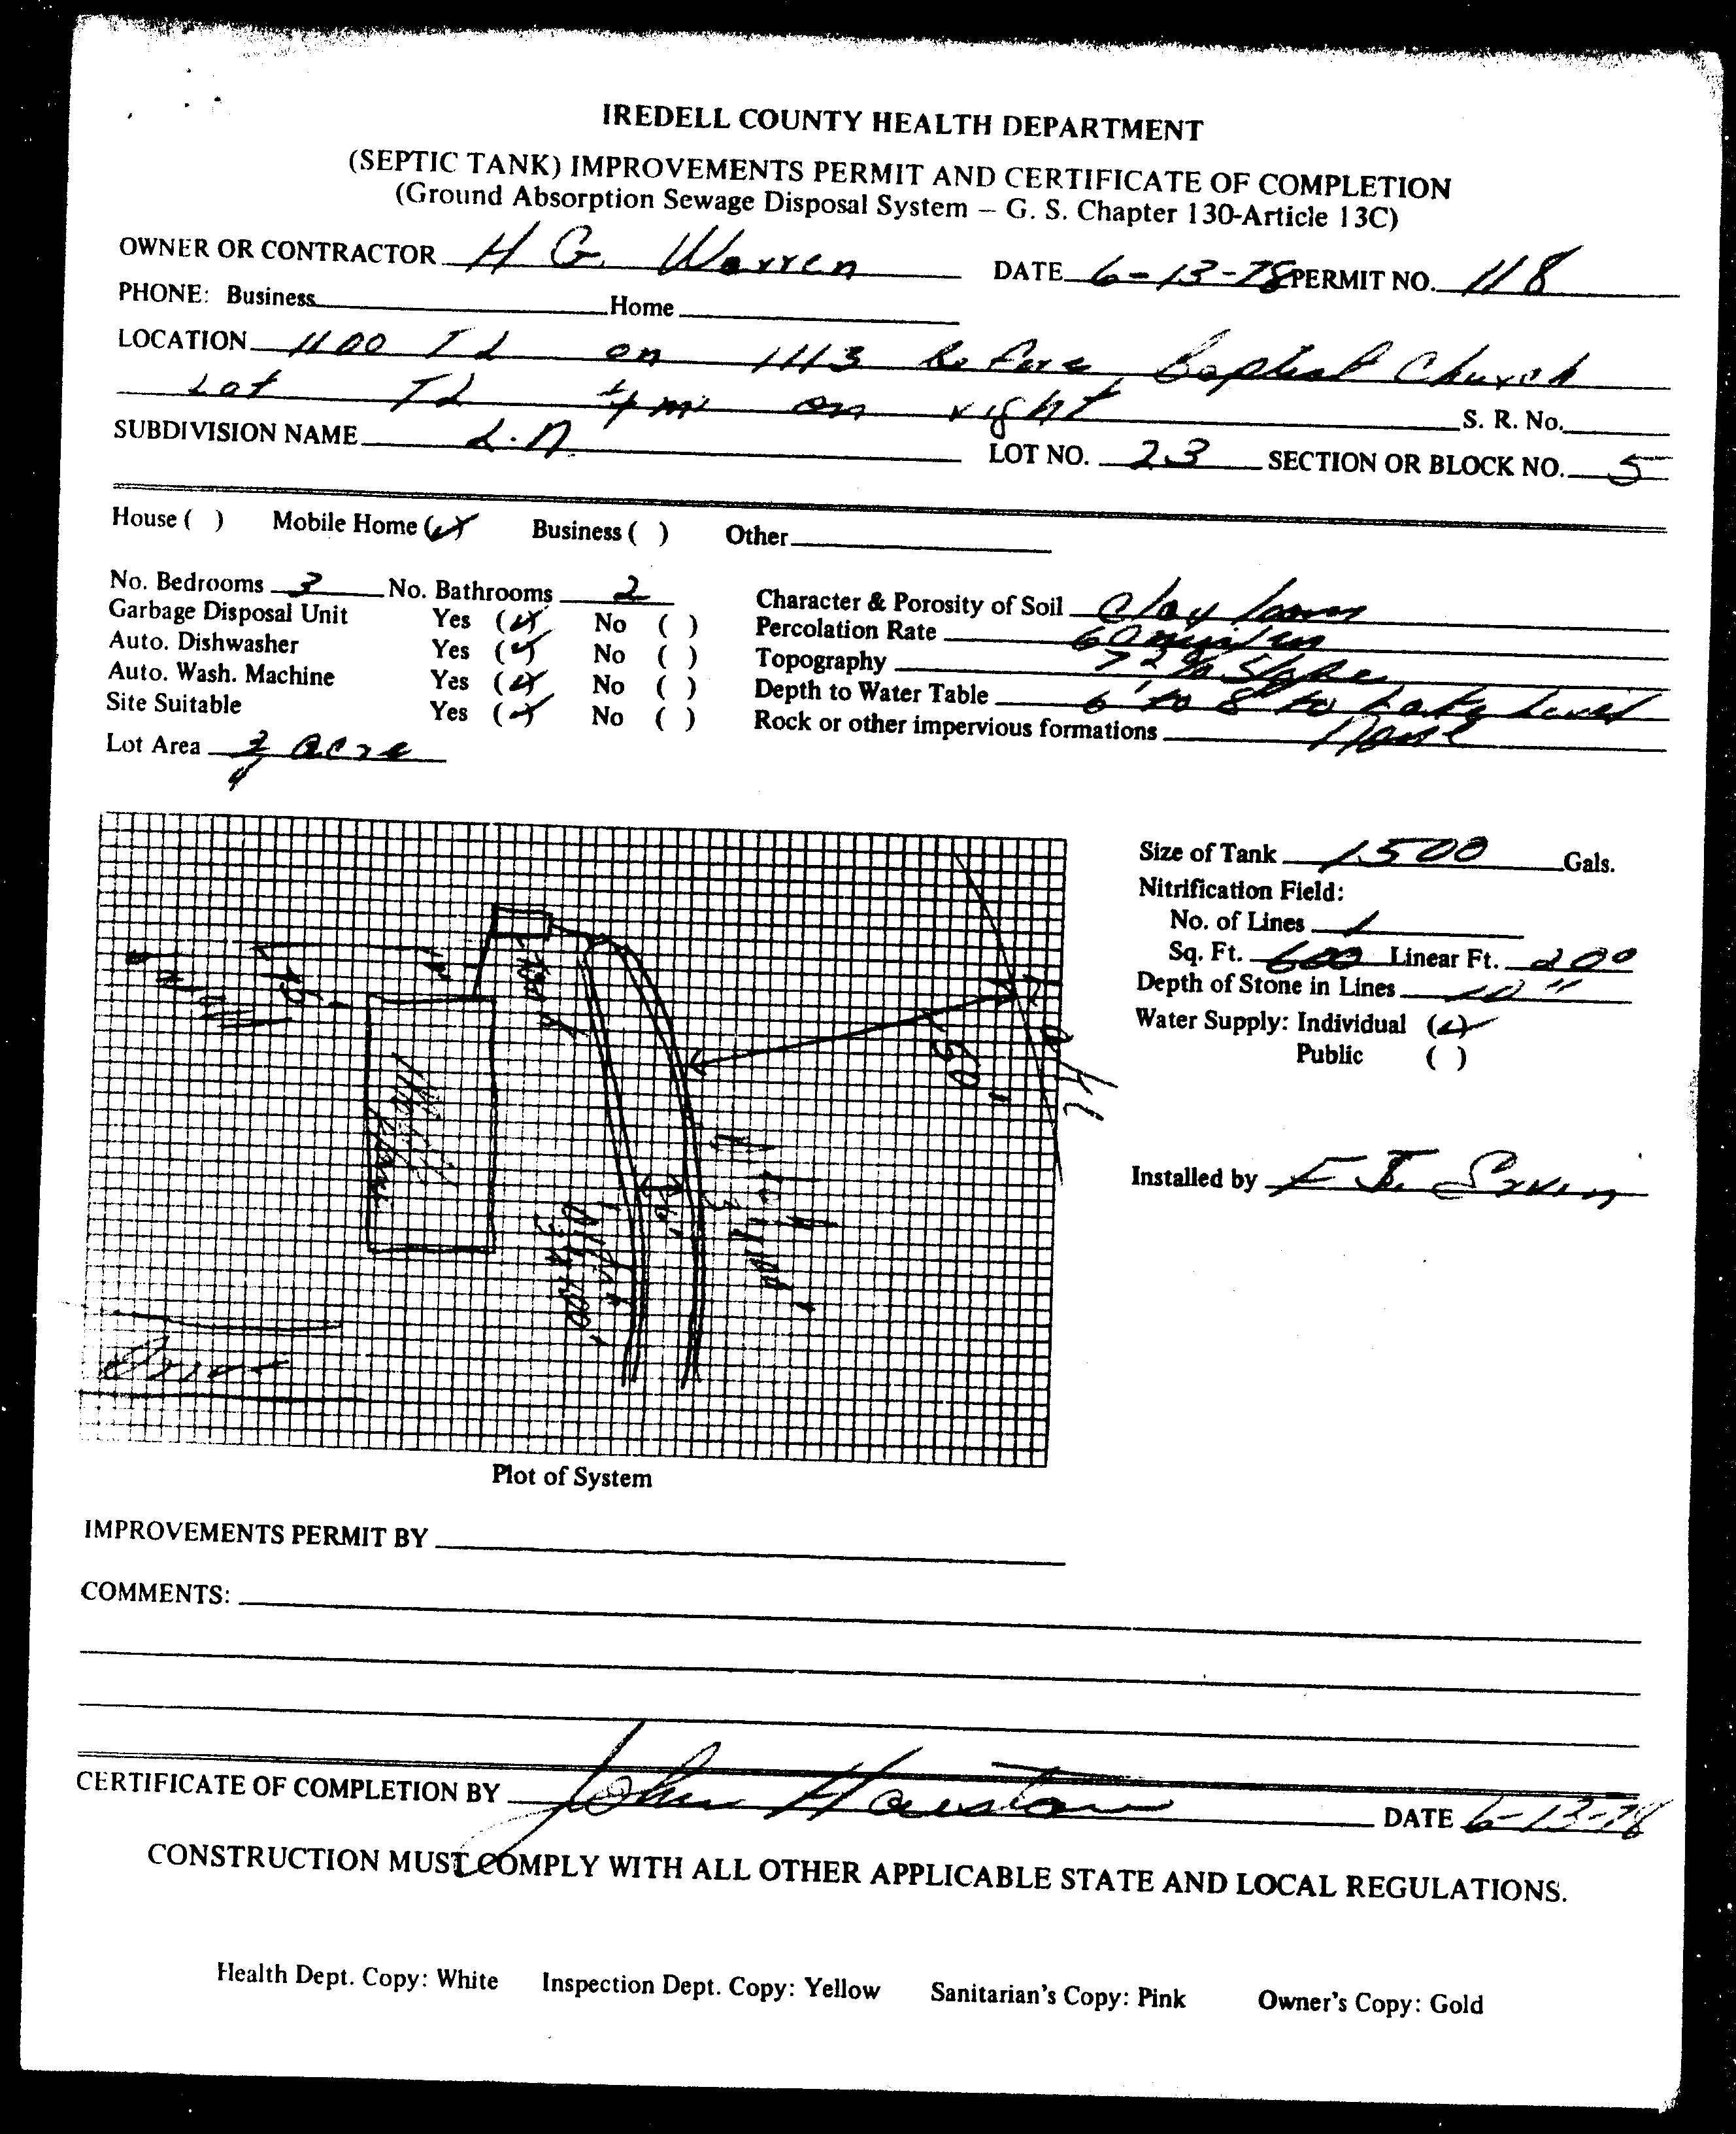 IREDELL COUNTY HEALTH DEPARTMENT
(SEPTIC TANK) IMPROVEMENTS PERMIT AND CERTIFICATE OF COMPLETION
(Ground Absorption Sewage Disposal System – G. S. Chapter 130-Article 13C)
OWNER OR CONTRACTOR H G. Warren DATE 6-13-78 PERMIT NO. 118
PHONE: Business Home
LOCATION 1100 TL on 1113 before Baptist Church
Lot TL on right S. R. No.
SUBDIVISION NAME L.N. LOT NO. 23 SECTION OR BLOCK NO. 5
House ( ) Mobile Home (✓) Business ( ) Other
No. Bedrooms 3 No. Bathrooms 2 Character & Porosity of Soil Clay loam
Garbage Disposal Unit Yes (✓) No ( ) Percolation Rate 60 min/in
Auto. Dishwasher Yes (✓) No ( ) Topography 72% Slope
Auto. Wash. Machine Yes (✓) No ( ) Depth to Water Table 6' to 8' to Lake Level
Site Suitable Yes (✓) No ( ) Rock or other impervious formations None
Lot Area 3/4 acre
Size of Tank 1500 Gals.
Nitrification Field:
No. of Lines 1
Sq. Ft. 600 Linear Ft. 200
Depth of Stone in Lines 10"
Water Supply: Individual (✓)
Public ( )
Installed by
50
Plot of System
IMPROVEMENTS PERMIT BY
COMMENTS:
CERTIFICATE OF COMPLETION BY John Houston DATE 6-13-78
CONSTRUCTION MUST COMPLY WITH ALL OTHER APPLICABLE STATE AND LOCAL REGULATIONS.
Health Dept. Copy: White Inspection Dept. Copy: Yellow Sanitarian's Copy: Pink Owner's Copy: Gold